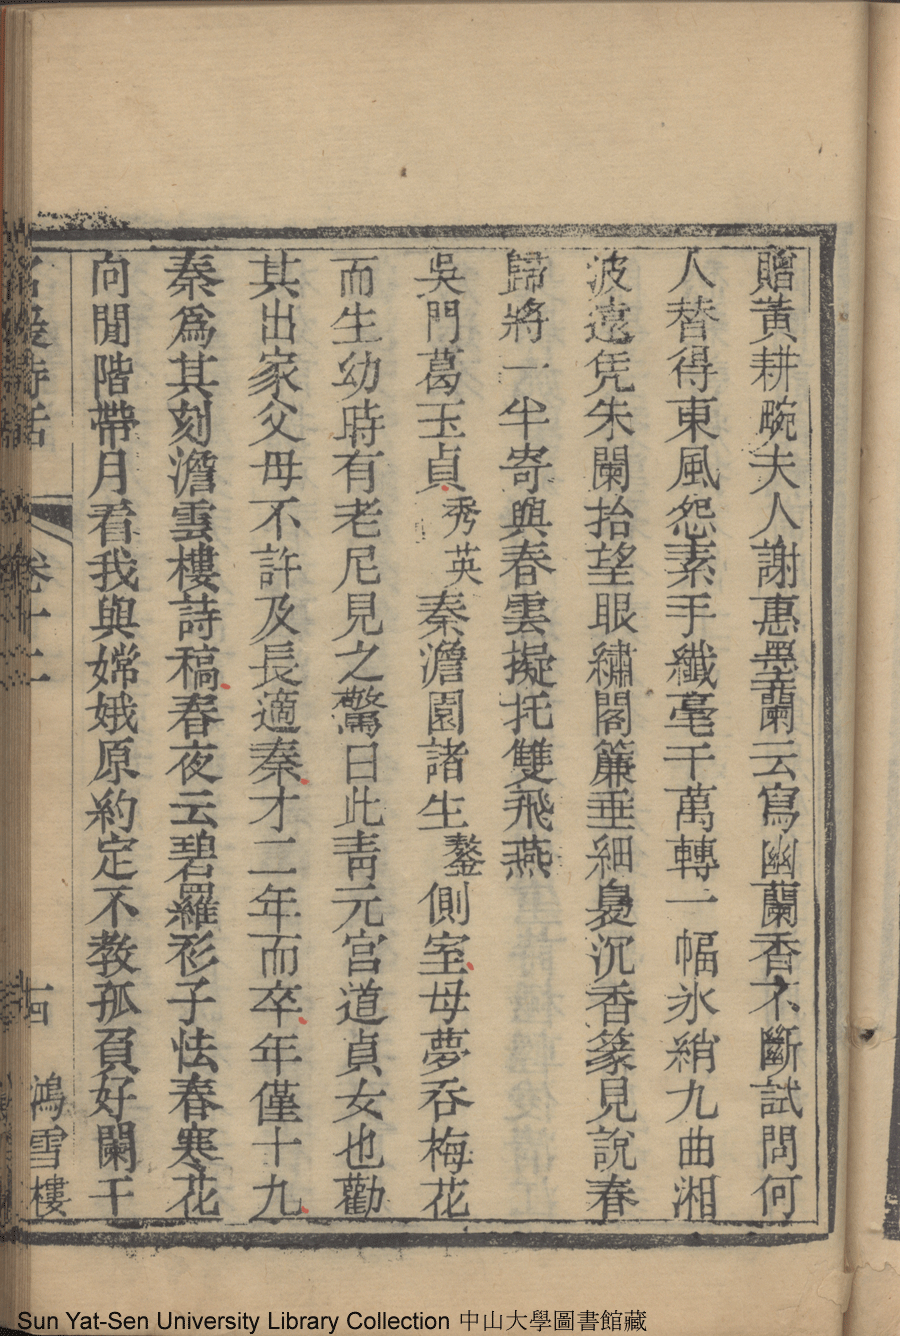 贈黃耕畹夫人謝惠墨蘭云寫幽蘭香不斷試問何
人替得東風怨素手纖毫千萬轉一幅氷綃九曲湘
波遠凭朱闌抬望眼繡閣簾垂細裊沉香篆見說春
歸將一半寄與春雲擬托雙飛燕
吳門葛玉貞秀英秦澹園諸生鏊側室母夢吞梅花
而生幼時有老尼見之驚曰此青元宮道貞女也勸
其出家父母不許及長適秦才二年而卒年僅十九
秦爲其刻澹雲樓詩稿春夜云碧羅衫子怯春寒花
向閒階帶月看我與嫦娥原約定不教孤負好闌干
名媛詩話 卷十二 十四 鴻雪樓
Sun Yat-Sen University Library Collection 中山大學圖書館藏